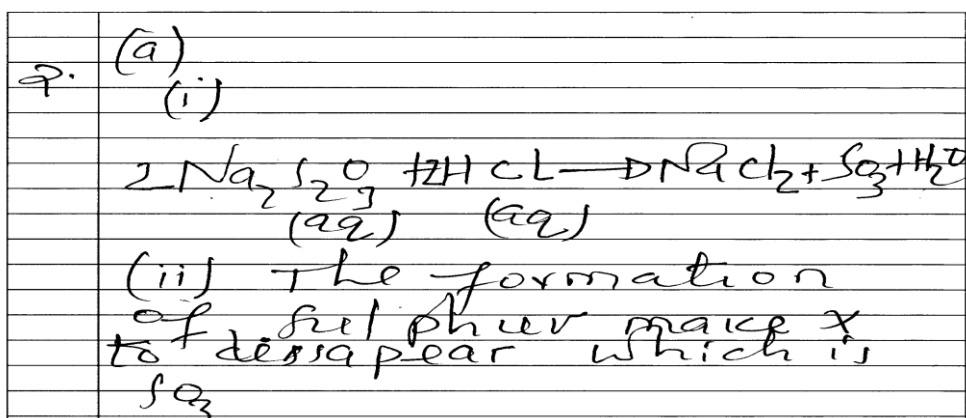 (a)
2.
(i)
2Na₂S₂O₃ + 2HCl → NaCl₂ + SO₃ + H₂O
(aq) (aq)
(ii) The formation
of sulphur make X
to dessapear which is
SO₃